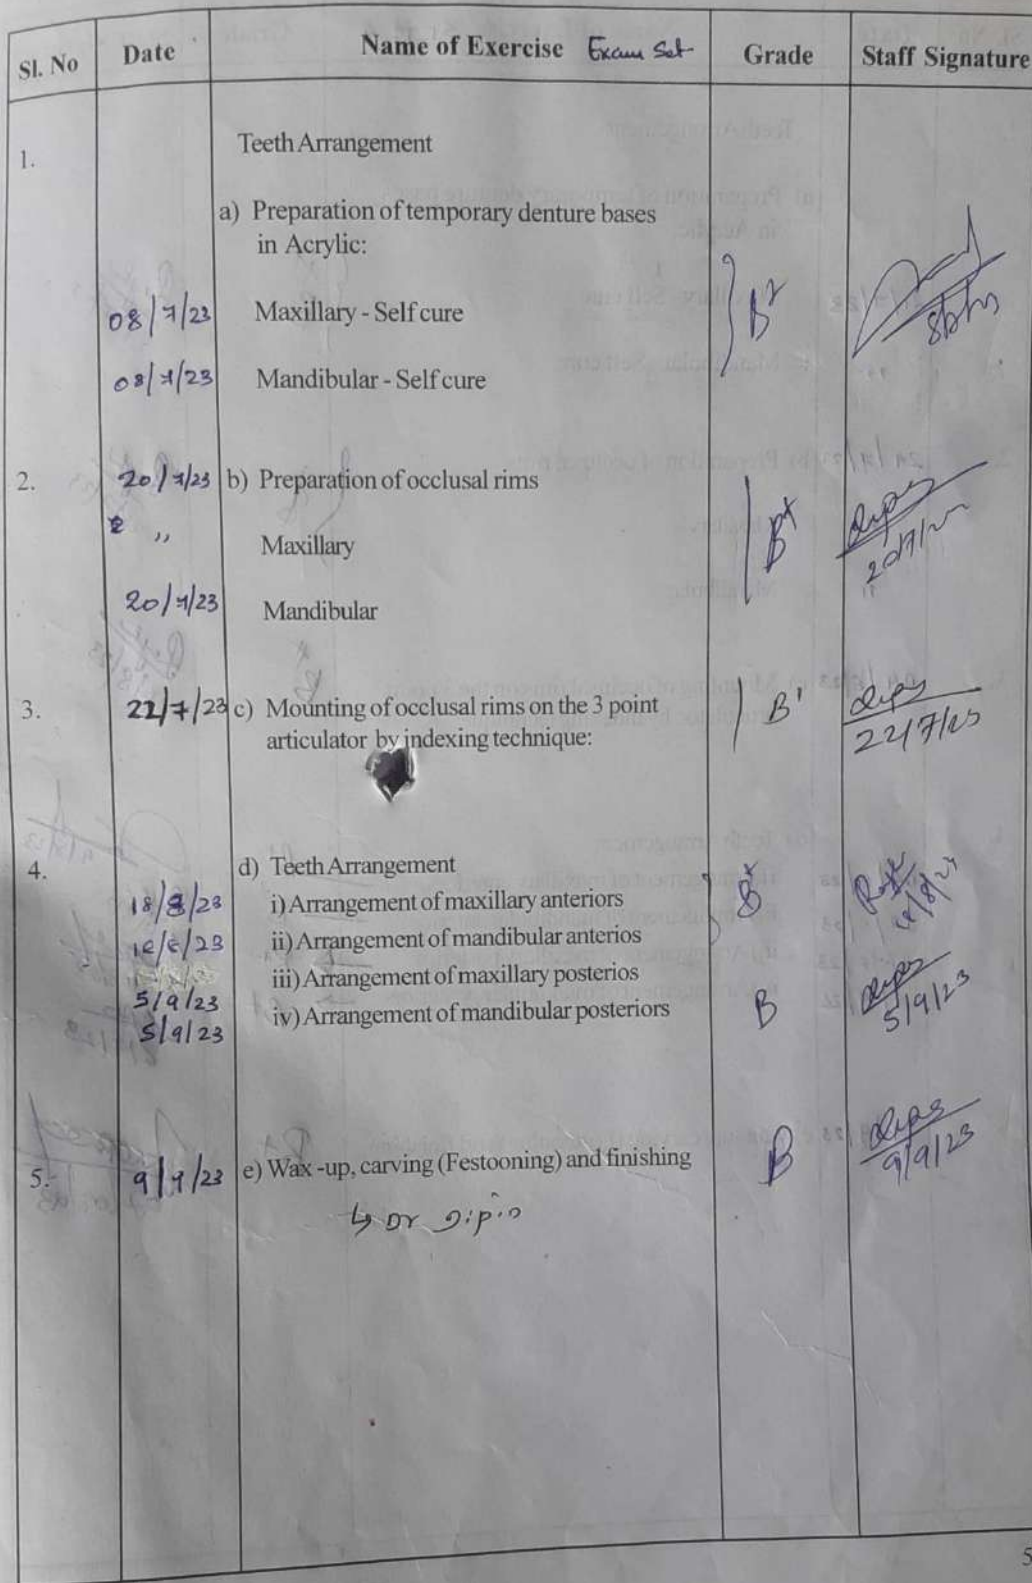 Sl. No Date Name of Exercise Exam Set Grade Staff Signature
1. Teeth Arrangement
a) Preparation of temporary denture bases
in Acrylic:
08/7/23 Maxillary - Self cure
08/7/23 Mandibular - Self cure
2. 20/7/23 b) Preparation of occlusal rims
,, Maxillary
20/7/23 Mandibular
3. 22/7/23 c) Mounting of occlusal rims on the 3 point
articulator by indexing technique:
22/7/23
4. d) Teeth Arrangement
18/8/23 i) Arrangement of maxillary anteriors
ii) Arrangement of mandibular anterios
iii) Arrangement of maxillary posterios
5/9/23 iv) Arrangement of mandibular posteriors B 5/9/23
5/9/23
5. 9/9/23 e) Wax -up, carving (Festooning) and finishing B 9/9/23
↳ Dr
5